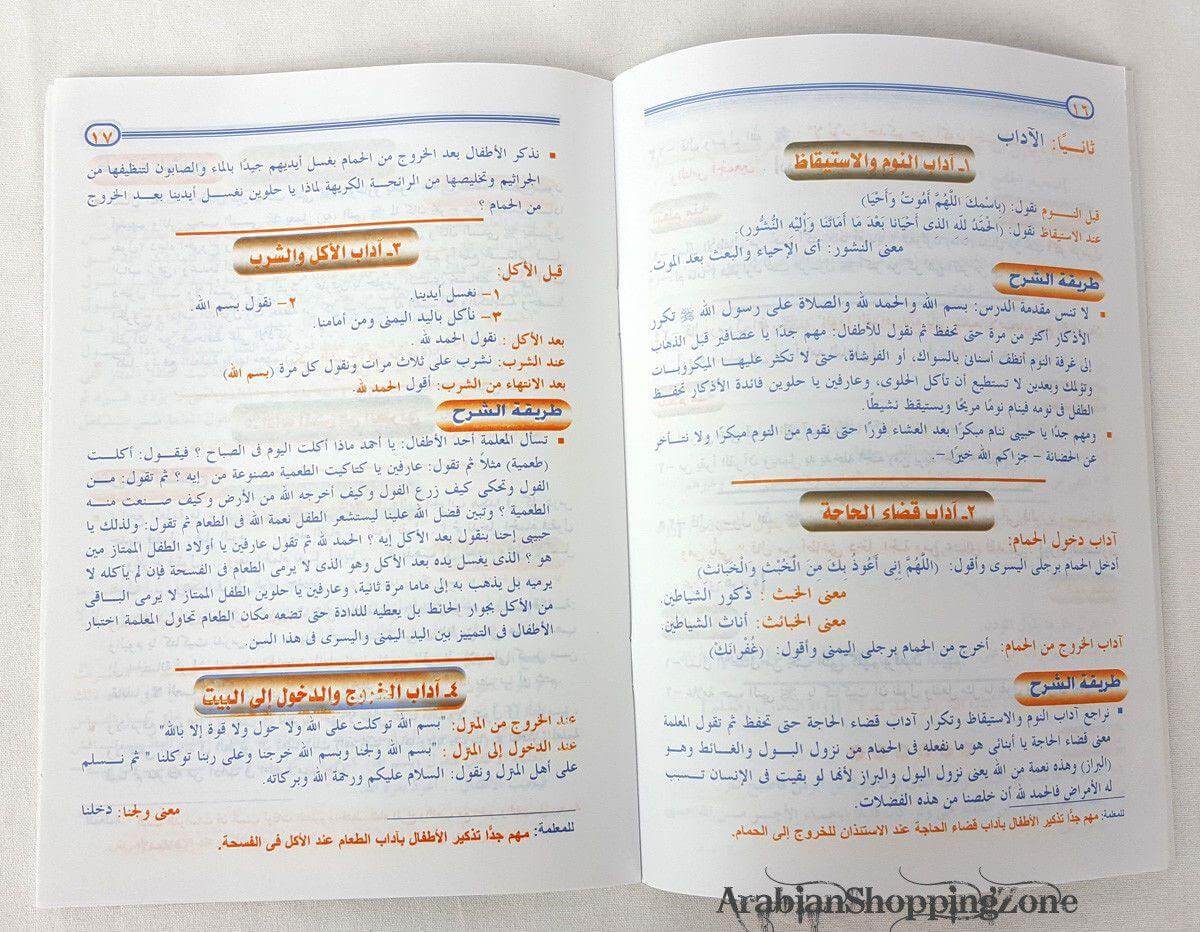 ١٦
ثانيًا: الآداب
١ـ آداب النوم والاستيقاظ
قبل النـــوم نقول: (باسْمِكَ اللَّهُمَّ أَمُوتُ وَأَحْيَا)
عند الاستيقاظ نقول: (الحَمْدُ لِلَّهِ الذى أَحْيَانا بَعْدَ مَا أمَاتَنَا وَإلَيْهِ النُّشُور).
معنى النشور: أى الإحياء والبعث بعد الموت.
طريقة الشرح
▪ لا تنس مقدمة الدرس: بسم الله والحمد لله والصلاة على رسول الله ﷺ تكرر
الأذكار أكثر من مرة حتى تحفظ ثم نقول للأطفال: مهم جدًا يا عصافير قبل الذهاب
إلى غرفة النوم أنظف أسنانى بالسواك، أو الفرشاة، حتى لا تكثر عليهـا الميكروبـات
وتؤلمك وبعدين لا تستطيع أن تأكل الحلوى، وعارفين يا حلوين فائدة الأذكار تحفـظ
الطفل فى نومه فينام نومًا مريحًا ويستيقظ نشيطًا.
▪ ومهم جدًا يا حبيبى ننام مبكرًا بعد العشاء فورًا حتى نقوم من النوم مبكرًا ولا نتـأخر
عن الحضانة – جزاكم الله خيرًا –.
٢ـ آداب قضاء الحاجة
آداب دخول الحمام:
أدخل الحمام برجلى اليسرى وأقول: (اللَّهُمَّ إِنى أَعُوذُ بِكَ مِنَ الْخُبْثِ والْخَبَائث)
معنى الخبث : ذكور الشياطين.
معنى الخبائث: أناث الشياطين.
آداب الخروج من الحمام: أخرج من الحمام برجلى اليمنى وأقول: (غُفْرانَكْ)
طريقة الشرح
▪ نراجع آداب النوم والاستيقاظ وتكرار آداب قضاء الحاجة حتى تحفظ ثم تقول المعلمة
معنى قضاء الحاجة يا أبنائى هو ما نفعله فى الحمام من نزول البـول والغـائط وهـو
(البراز) وهذه نعمة من الله يعنى نزول البول والبراز لأنها لو بقيت فى الإنسان تـسبب
له الأمراض فالحمد لله أن خلصنا من هذه الفضلات.
للمعلمة: مهم جدًا تذكير الأطفال بآداب قضاء الحاجة عند الاستئذان للخروج إلى الحمام.
١٧
▪ نذكر الأطفال بعد الخروج من الحمام بغسل أيديهم جيدًا بالماء والصابون لتنظيفها من
الجراثيم وتخليصها من الرائحـة الكريهة لماذا يا حلوين نغسـل أيدينا بعـد الخروج
من الحمام ؟
٣ـ آداب الأكل والشرب
قبل الأكل:
١– نغسل أيدينا. ٢– نقول بسم الله.
٣– نأكل باليد اليمنى ومن أمامنا.
بعد الأكل : نقول الحمد لله .
عند الشرب: نشرب على ثلاث مرات ونقول كل مرة (بسم الله)
بعد الانتهاء من الشرب: أقول الحمد لله.
طريقة الشرح
▪ تسأل المعلمة أحد الأطفال: يا أحمد ماذا أكلت اليوم فى الصباح ؟ فيقـول: أكلـت
(طعمية) مثلاً ثم تقول: عارفين يا كتاكيت الطعمية مصنوعة من إيه ؟ ثم تقول: مـن
الفول وتحكى كيف زرع الفول وكيف أخرجه الله من الأرض وكيف صـنعت منـه
الطعمية ؟ وتبين فضل الله علينا ليستشعر الطفل نعمة الله فى الطعام ثم تقول: ولذلك يا
حبيبى إحنا بنقول بعد الأكل إيه ؟ الحمد لله ثم تقول عارفين يا أولاد الطفل الممتاز مين
هو ؟ الذى يغسل يده بعد الأكل وهو الذى لا يرمى الطعام فى الفسحة فإن لم يأكله لا
يرميه بل يذهب به إلى ماما مرة ثانية، وعارفين يا حلوين الطفل الممتاز لا يرمى البـاقى
من الأكل بجوار الحائط بل يعطيه للدادة حتى تضعه مكان الطعام تحاول المعلمة اختبار
الأطفال فى التمييز بين اليد اليمنى واليسرى فى هذا السن.
٤ـ آداب الخروج والدخول إلى البيت
عند الخروج من المنزل: "بسم الله توكلت على الله ولا حول ولا قوة إلا بالله"
عند الدخول إلى المنزل : "بسم الله ولجنا وبسم الله خرجنا وعلى ربنا توكلنا" ثم نـسلم
على أهل المنزل ونقول: السلام عليكم ورحمة الله وبركاته.
معنى ولجنا: دخلنا
للمعلمة: مهم جدًا تذكير الأطفال بآداب الطعام عند الأكل فى الفسحة.
ArabianShoppingZone